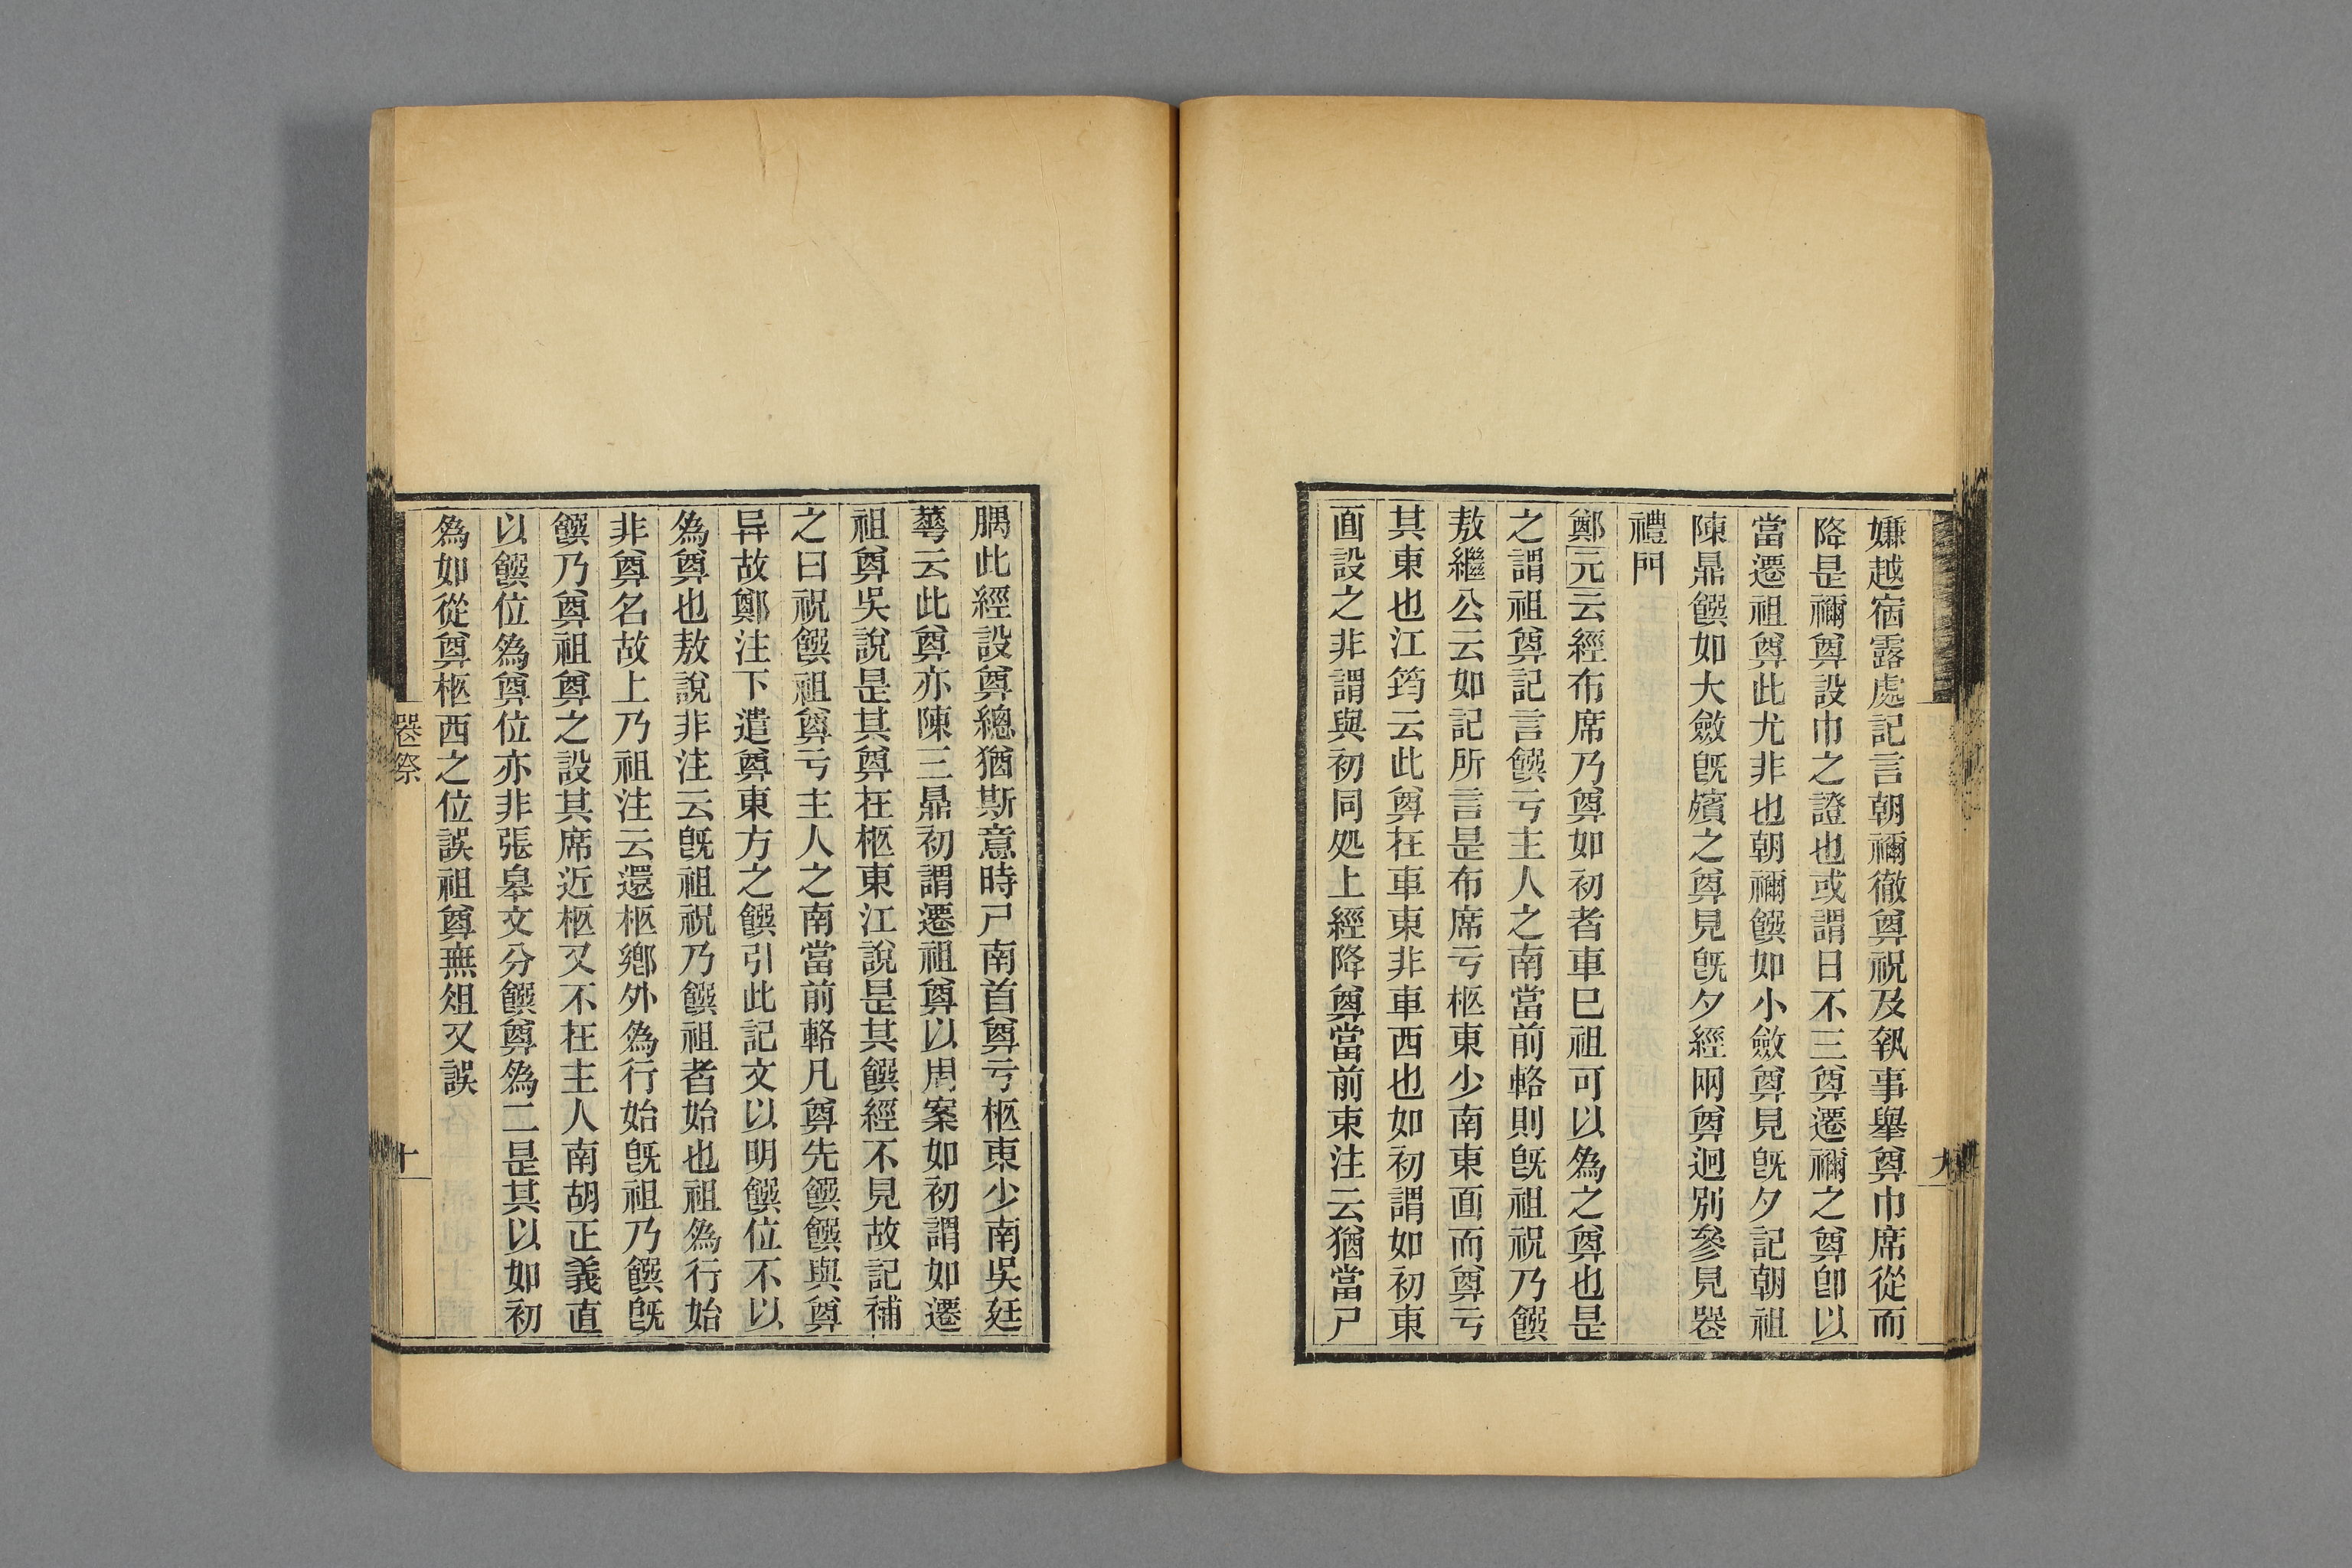 嫌越宿露處記言朝禰徹奠祝及執事舉奠巾席從而
降是禰奠設巾之證也或謂日不三奠遷禰之奠卽以
當遷祖奠此尤非也朝禰饌如小斂奠見旣夕記朝祖
陳鼎饌如大斂旣殯之奠見旣夕經兩奠迥別參見器
禮門
鄭元云經布席乃奠如初者車巳祖可以為之奠也是
之謂祖奠記言饌亏主人之南當前輅則旣祖祝乃饌
敖繼公云如記所言是布席亏柩東少南東面而奠亏
其東也江筠云此奠在車東非車西也如初謂如初東
面設之非謂與初同処上經降奠當前束注云猶當尸
腢此經設奠總猶斯意時尸南首奠亏柩東少南吳廷
蕚云此奠亦陳三鼎初謂遷祖奠以周案如初謂如遷
祖奠吳說是其奠在柩東江說是其饌經不見故記補
之曰祝饌祖奠亏主人之南當前輅凡奠先饌饌與奠
异故鄭注下遣奠東方之饌引此記文以明饌位不以
為奠也敖說非注云旣祖祝乃饌祖者始也祖為行始
非奠名故上乃祖注云還柩鄉外為行始旣祖乃饌旣
饌乃奠祖奠之設其席近柩又不在主人南胡正義直
以饌位為奠位亦非張皋文分饌奠為二是其以如初
為如從奠柩西之位誤祖奠無俎又誤
祭
十